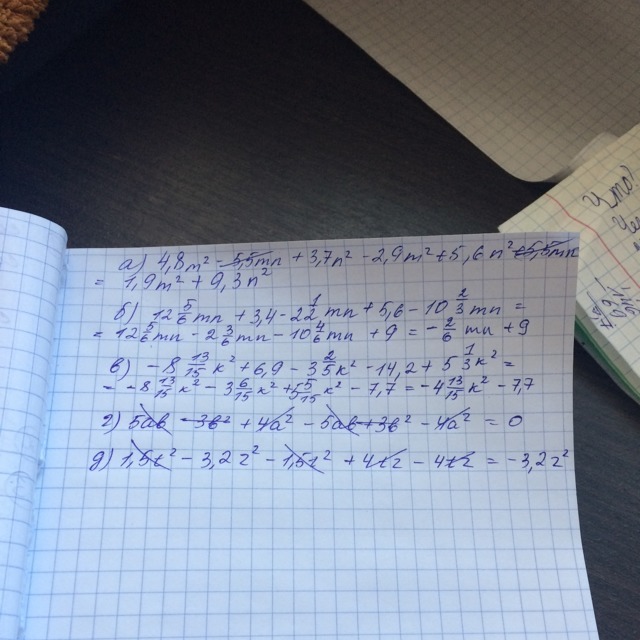 а) 4,8m² - 5,5mn + 3,7n² - 2,9m² + 5,6n² + 5,5mn
= 1,9m² + 9,3n²
б) 12 5/6 mn + 3,4 - 2 1/2 mn + 5,6 - 10 2/3 mn =
= 12 5/6 mn - 2 3/6 mn - 10 4/6 mn + 9 = - 2/6 mn + 9
в) -8 13/15 k² + 6,9 - 3 2/5 k² - 14,2 + 5 1/3 k² =
= -8 13/15 k² - 3 6/15 k² + 5 5/15 k² - 7,7 = -4 13/15 k² - 7,7
г) 5ab - 3b² + 4a² - 5ab + 3b² - 4a² = 0
д) 1,5t² - 3,2z² - 1,5t² + 4tz - 4tz = -3,2z²
Что